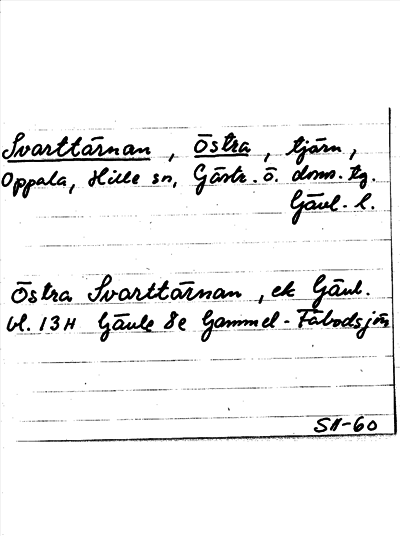 Svarttärnan, Östra, tjärn,
Oppala, Hille sn, Gästr. ö. doms. tg.
Gävl. l.
Östra Svarttärnan, ek Gävl.
bl. 13H Gävle 8e Gammel-Fäbodsjön
SH-60